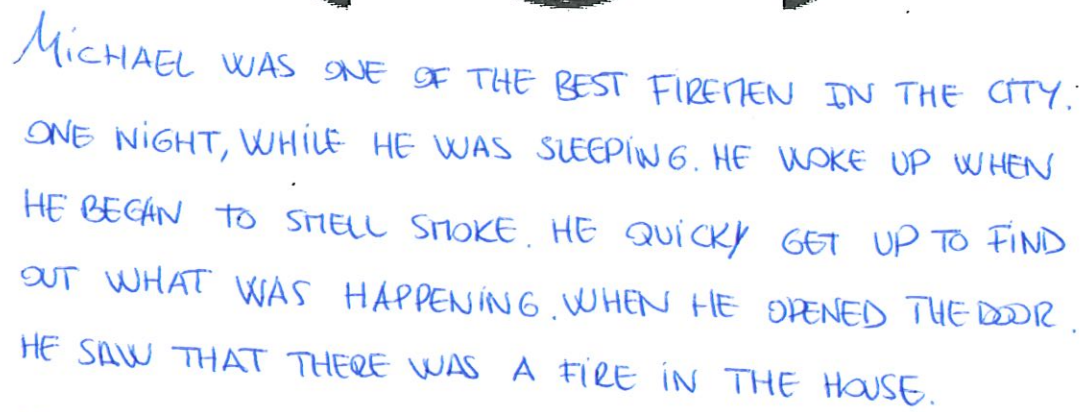 MICHAEL WAS ONE OF THE BEST FIREMEN IN THE CITY.
ONE NIGHT, WHILE HE WAS SLEEPING. HE WOKE UP WHEN
HE BEGAN TO SMELL SMOKE. HE QUICKY GET UP TO FIND
OUT WHAT WAS HAPPENING. WHEN HE OPENED THE DOOR.
HE SAW THAT THERE WAS A FIRE IN THE HOUSE.